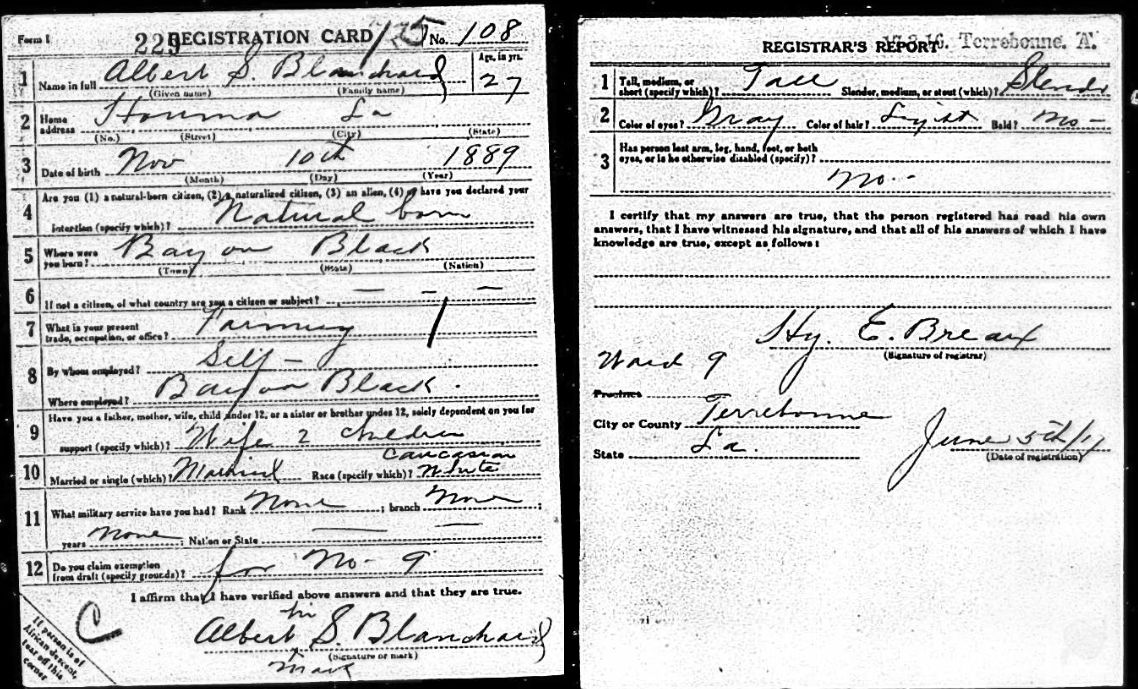 Form 1 229 REGISTRATION CARD 125 No. 108
1 Name in full Albert S. Blanchard Age, in yrs. 27
(Given name) (Family name)
2 Home address Houma La
(No.) (Street) (City) (State)
3 Date of birth Nov 10th 1889
(Month) (Day) (Year)
4 Are you (1) a natural-born citizen, (2) a naturalized citizen, (3) an alien, (4) or have you declared your
intention (specify which)? Natural born
5 Where were you born? Bayou Black
(Town) (State) (Nation)
6 If not a citizen, of what country are you a citizen or subject? — - —
7 What is your present trade, occupation, or office? Farming
8 By whom employed? Self —
Where employed? Bayou Black.
9 Have you a father, mother, wife, child under 12, or a sister or brother under 12, solely dependent on you for
support (specify which)? Wife 2 children
Caucasian
10 Married or single (which)? Married Race (specify which)? White
11 What military service have you had? Rank None ; branch None ;
years None ; Nation or State — —
12 Do you claim exemption from draft (specify grounds)? for No. 9
I affirm that I have verified above answers and that they are true.
his
Albert S. Blanchard
(Signature or mark)
mark
C
If person is of
African descent,
tear off this
corner
REGISTRAR'S REPORT 17-3-16. Terrebonne. A.
1 Tall, medium, or short (specify which)? Tall Slender, medium, or stout (which)? Slender
2 Color of eyes? Gray Color of hair? Light Bald? No —
3 Has person lost arm, leg, hand, foot, or both
eyes, or is he otherwise disabled (specify)?
No. -
I certify that my answers are true, that the person registered has read his own
answers, that I have witnessed his signature, and that all of his answers of which I have
knowledge are true, except as follows:
Hy. E. Breaux
(Signature of registrar)
Ward 9
Precinct
City or County Terrebonne
State La.
June 5th/17
(Date of registration)